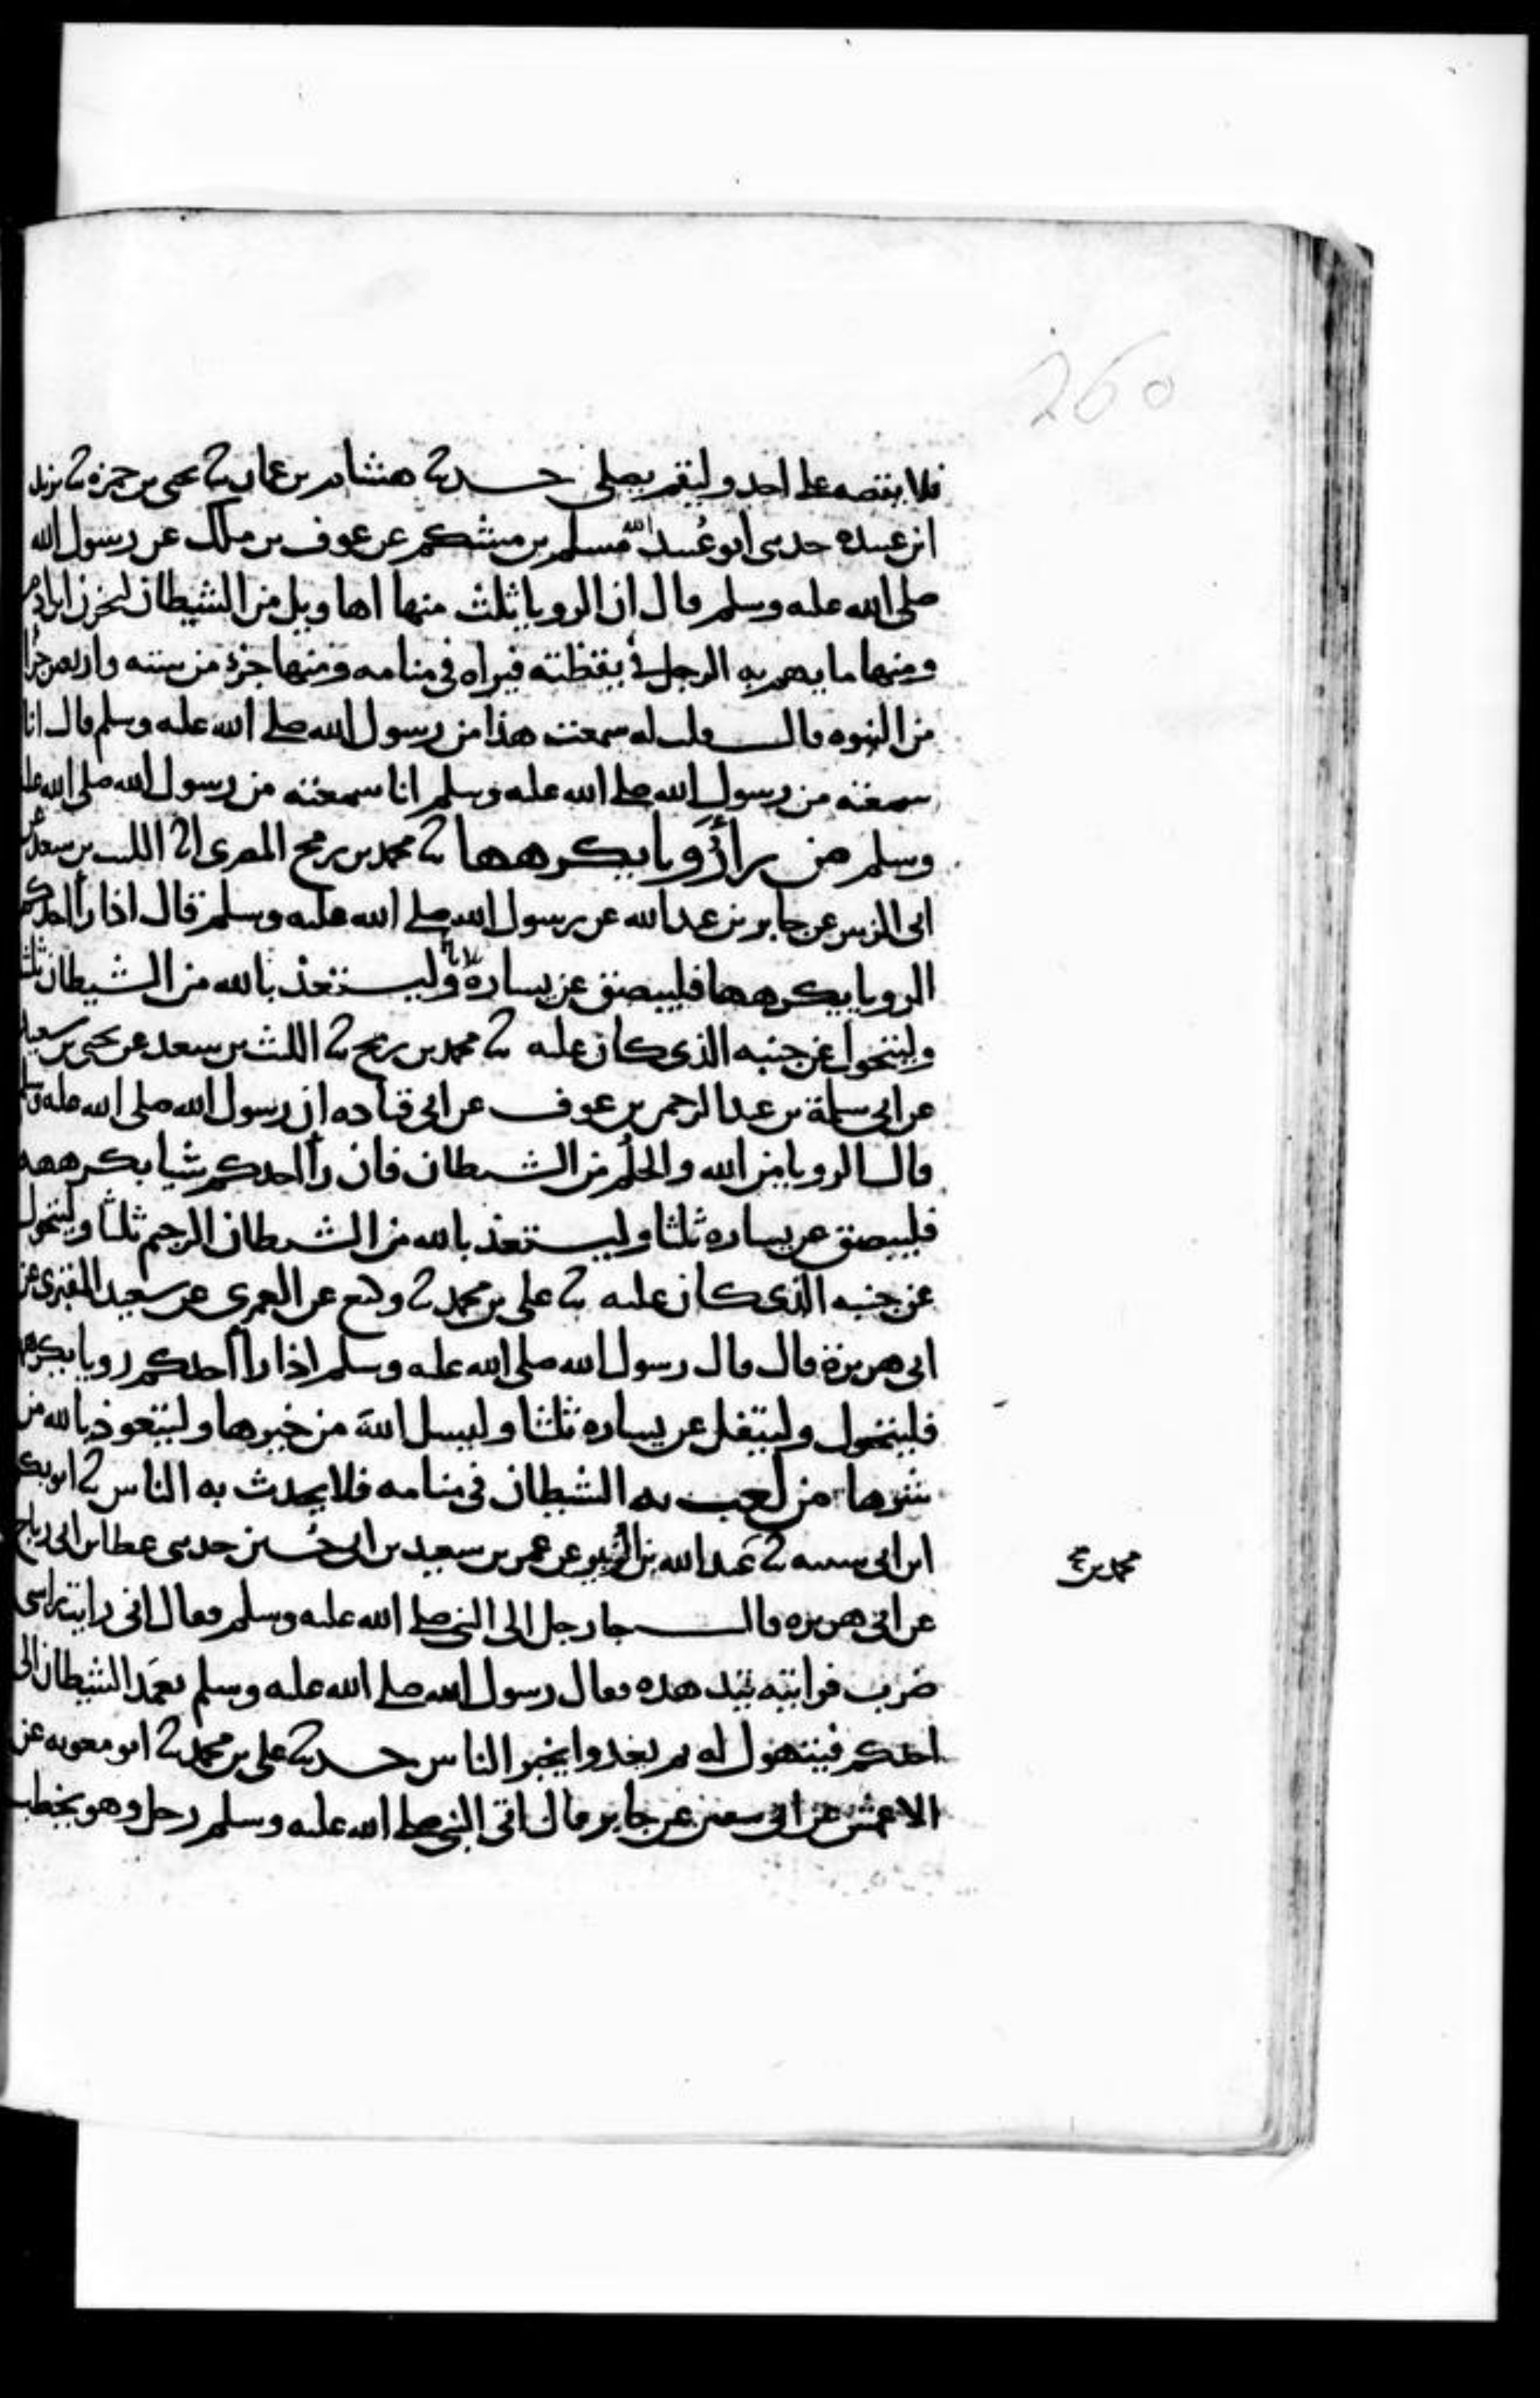 260
فلا يقصه على احد وليقم يصلى حدثنا هشام بن عمار ثنا يحيى بن حمزة ثنا يزيد
ابن عبيده حدثنى ابو عبيد الله مسلم بن مشكم عن عوف بن ملك عن رسول الله
صلى الله عليه وسلم قال ان الرويا ثلث منها اهاويل من الشيطان ليحزن ابن ادم
ومنها ما يهم به الرجل فى يقظته فيراه فى منامه ومنها جزء من سته واربعين جزءا
من النبوه قال قلت له سمعت هذا من رسول الله صلى الله عليه وسلم قال انا
سمعته من رسول الله صلى الله عليه وسلم انا سمعته من رسول الله صلى الله عليه
وسلم من راى رؤيا يكرهها ثنا محمد بن رمح المصرى انا الليث بن سعد عن
ابى الزبير عن جابر بن عبد الله عن رسول الله صلى الله عليه وسلم قال اذا راا احدكم
الرويا يكرهها فليبصق عن يساره ثلاثا وليستعذ بالله من الشيطان ثلثا
وليتحول عن جنبه الذى كان عليه ثنا محمد بن رمح ثنا الليث بن سعد عن يحيى بن سعيد
عن ابى سلمة بن عبد الرحمن بن عوف عن ابى قتاده ان رسول الله صلى الله عليه وسلم
قال الرويا من الله والحلم من الشيطان فان راا احدكم شيا يكرهه
فليبصق عن يساره ثلثا وليستعذ بالله من الشيطان الرجيم ثلثا وليتحول
عن جنبه الذى كان عليه ثنا على بن محمد ثنا وكيع عن العمرى عن سعيد المقبرى عن
ابى هريرة قال قال رسول الله صلى الله عليه وسلم اذا راا احدكم رويا يكرهها
فليتحول وليتفل عن يساره ثلثا وليسل الله من خيرها وليتعوذ بالله من
شرها من لعب به الشيطان فى منامه فلا يحدث به الناس ثنا ابو بكر
ابن ابى شيبه ثنا عبد الله بن الزبير عن عمر بن سعيد بن ابى حسين حدثنى عطا بن ابى رباح
محمد بن
عن ابى هريره قال جا رجل الى النبى صلى الله عليه وسلم فقال انى رايت راسى
ضرب فرايته يتد هده فقال رسول الله صلى الله عليه وسلم يعمد الشيطان الى
احدكم فيتهول له ثم يغدوا يخبر الناس حدثنا على بن محمد ثنا ابو معويه عن
الاعمش عن ابى سفين عن جابر قال اتى النبى صلى الله عليه وسلم رجل وهو يخطب